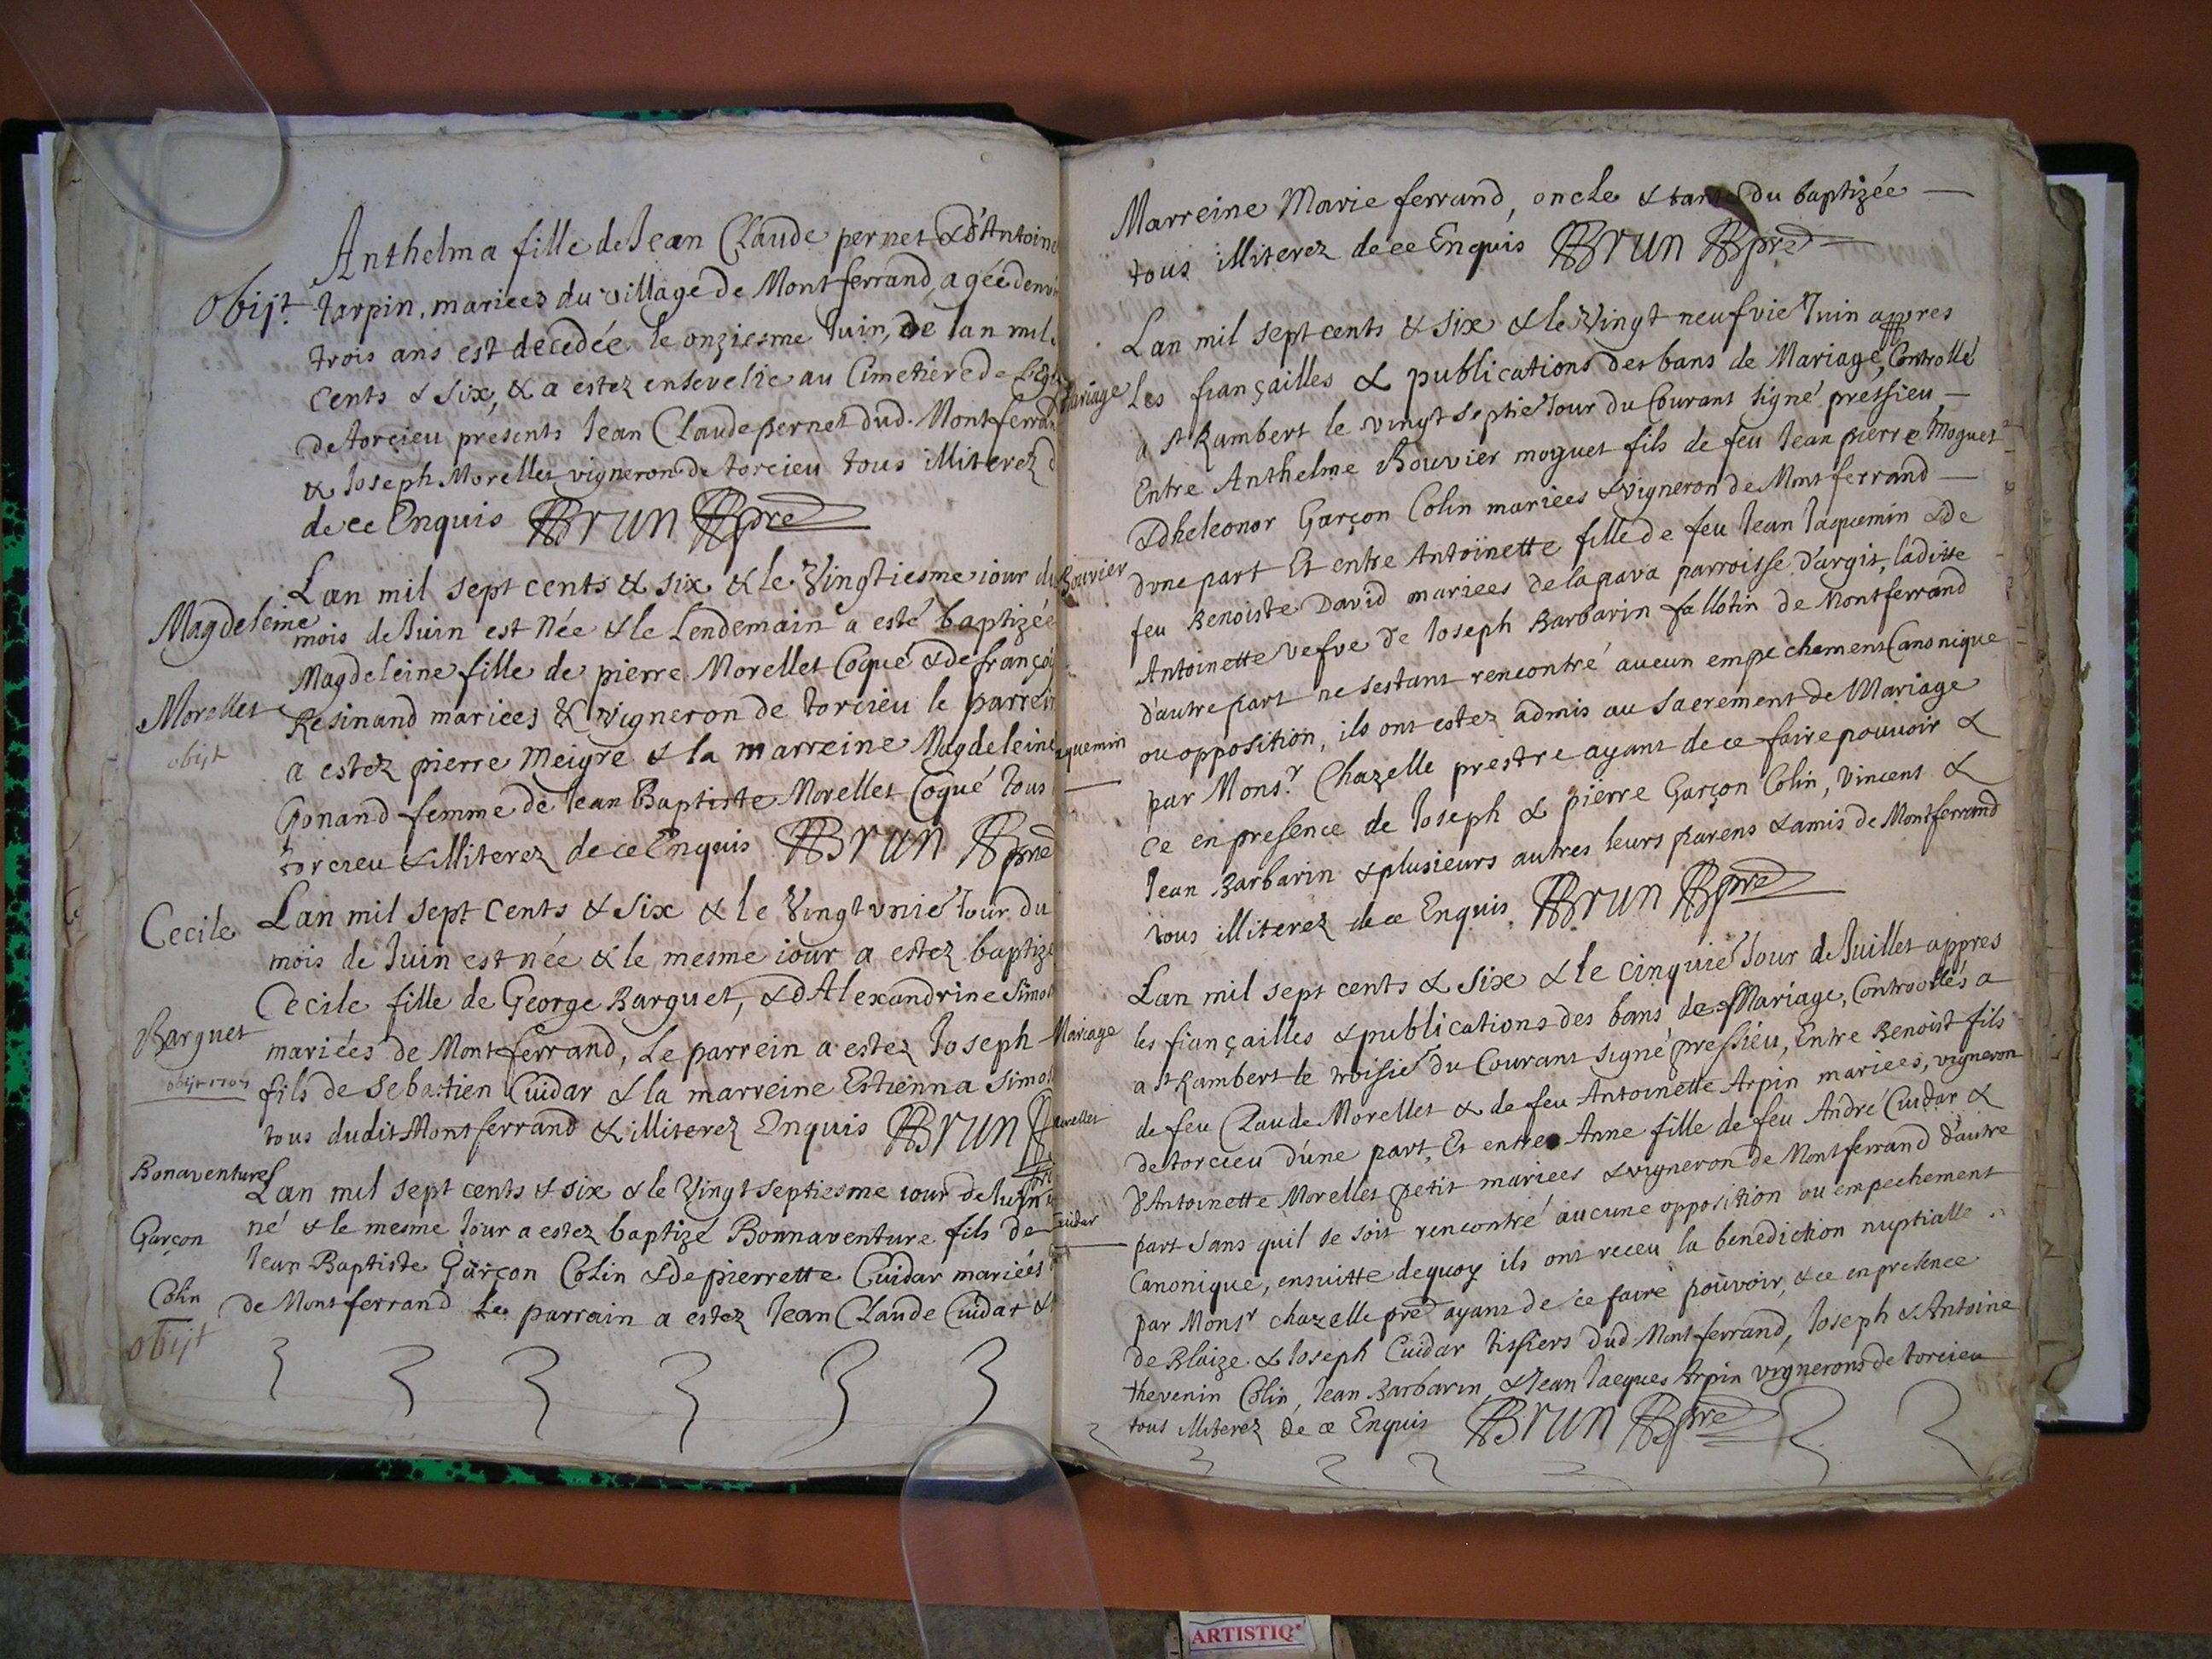 Anthelma fille de Jean Claude pernet & d'Antoine
obijt Tarpin, mariees du village de Montferrand, agée denvi
trois ans est decedée le onziesme Juin, de lan mil
cents & six, & a estez ensevelie au Cimetiere de l'Egli
de torcieu presents Jean Claude pernet dud. Montferran
& Joseph Morellet vigneron de torcieu tous illiterez d
de ce Enquis Brun pre
Lan mil sept cents & six & le Vingtiesme iour du
Magdeleine mois de Juin est Née & le Lendemain a esté baptizée
Magdeleine fille de pierre Morellet Coqué & de françoi
Morellet Resinand mariees & vigneron de torcieu le parrein
obijt a estez pierre Meigre & la marreine Magdeleine
Gonand femme de Jean Baptiste Morellet Coqué tous
torcieu & illiterez de ce Enquis Brun pre
Cecile Lan mil sept Cents & six & le Vingt vnie Jour du
mois de Juin est née & le mesme iour a estez baptize
Cecile fille de George Barguet, & d'Alexandrine Simon
Barguet mariées de Montferrand, Le parrein a estez Joseph
obijt 1707 fils de Sebastien Cuidar & la marreine Estienna Simon
tous dudit Montferrand & illiterez Enquis Brun
Bonaventure Lan mil sept cents & six & le Vingt septiesme iour de Juin
Garçon né & le mesme Jour a estez baptizé Bonnaventure fils de
Jean Baptiste Garçon Colin & de pierrette Cuidar mariées
Colin de Montferrand Le parrain a estez Jean Claude Cuidar &
obijt
Marreine Marie ferrand, oncle & tante du baptizée
tous illiterez de ce Enquis Brun pre
Lan mil sept cents & six & le Vingt neufvie Juin appres
Mariage Les fiançailles & publications des bans de Mariage, Controllé
a st Rambert le vingt septie Jour du Courant signé pressieu
Entre Anthelme Bouvier moguet fils de feu Jean pierre Moguet
& dheleonor Garçon Colin mariees & vigneron de Montferrand
Bouvier dvne part Et entre Antoinette fille de feu Jean Jaquemin & de
feu Benoiste David mariees de la pava parroisse d'argis, ladite
Antoinette vefve de Joseph Barbarin fallotin de Montferrand
d'autre part ne sestant rencontré aucun empechement Canonique
ou opposition, ils ont estez admis au Sacrement de Mariage
aquemin par Monsr. Chazelle prestre ayant de ce faire pouuoir &
ce en presence de Joseph & pierre Garçon Colin, Vincent &
Jean Barbarin & plusieurs autres leurs parens & amis de Montferrand
tous illiterez de ce Enquis Brun pre
Lan mil sept cents & six & le cinquie Jour de Juillet appres
Mariage les fiançailles & publications des bans de Mariage, Controollés a
a st Rambert le troisie du Courant signé pressieu, Entre Benoist fils
de feu Claude Morellet & de feu Antoinette Arpin mariees, vigneron
Morellet de torcieu d'une part, Et entre Anne fille de feu André Cuidar &
d'Antoinette Morellet petit mariees & vigneron de Montferrand d'autre
part sans quil se soit rencontré aucune opposition ou empechement
Cuidar Canonique, ensuitte dequoy ils ont receu la benediction nuptialle
par Monsr chazelle pre ayant de ce faire pouvoir, & ce en presence
de Blaize & Joseph Cuidar tissiers dud Montferrand, Joseph & Antoine
thevenin Colin, Jean Barbarin & Jean Jacques Arpin vignerons de torcieu
tous illiterez de ce Enquis Brun pre
ARTISTIQ